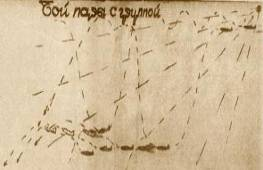 Бой пазы с группой